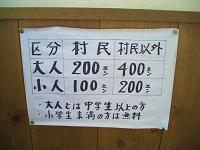 区分 村民 村民以外
大人 200エン 400エン
小人 100エン 200エン
・大人とは中学生以上の方
・小学生未満の方は無料